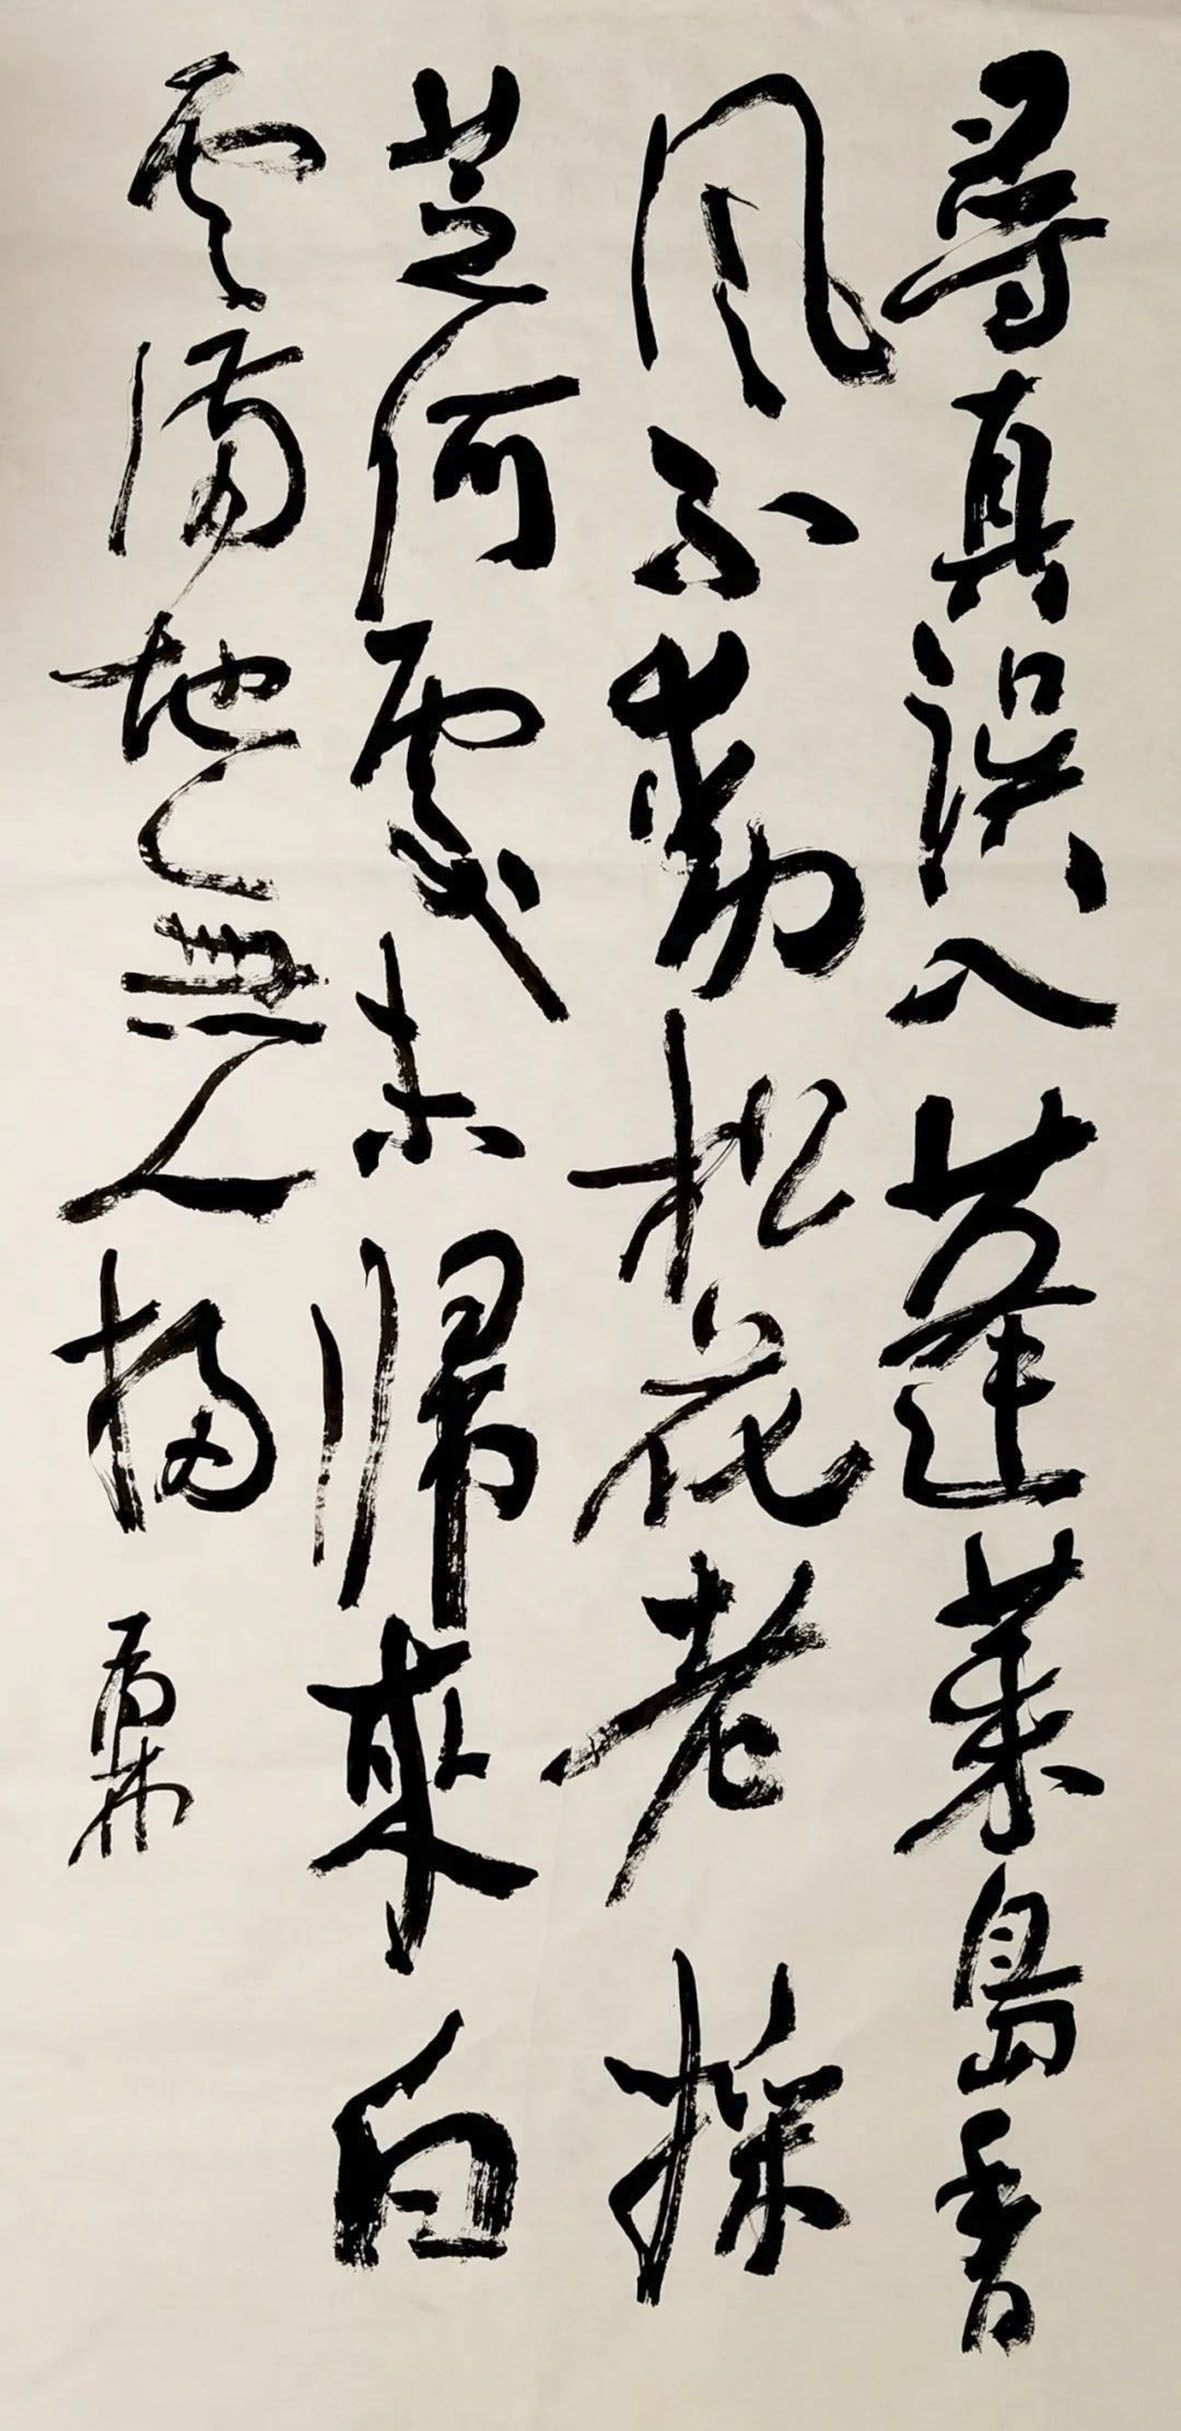 尋真誤入蓬萊島香
風不動松花老採
芝何處未歸來白
雲滿地無人掃